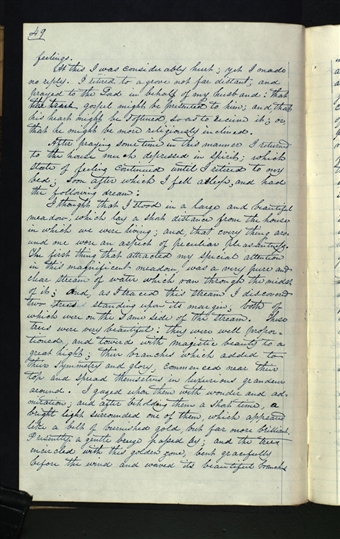 49
feelings.
At this I was considerably hurt; yet I made
no reply. I retired to a grove not far distant, and
prayed to the Lord in behalf of my husband: that
the true gospel might be presented to him; and that
his heart might be softened so as to receive it; or,
that he might be more religiously inclined.
After praying some time in this manner I returned
to the house much depressed in spirit; which
state of feeling continued until I retired to my
bed; Soon after which I fell asleep, and had
the following dream:
I thought that I stood in a large and beautiful
meadow, which lay a short distance from the house
in which we were living; and, that every thing aro-
und me wore an aspect of peculiar pleasantness.
The first thing that attracted my special attention
in this magnificent meadow, was a very pure and
clear stream of water which ran through the midst
of it; and, as I traced this stream, I discovered
two trees standing upon its margin; both of
which were on the same side of the stream. These
trees were very beautiful: they were well propor-
tioned, and towered with magestic beauty to a
great hight; their branches which added to
their symmetry and glory, commenced near their
top and spread themselves in luxurious grandeur
around. I gazed upon them with wonder and ad-
miration; and after beholding them a short time, a
bright light surrounded one of them, which appeared
like a belt of burnished gold, but far more brilliant.
Presently, a gentle breeze passed by; and the tree
encircled with this golden zone, bent gracefully
before the wind and waved its beautiful branches